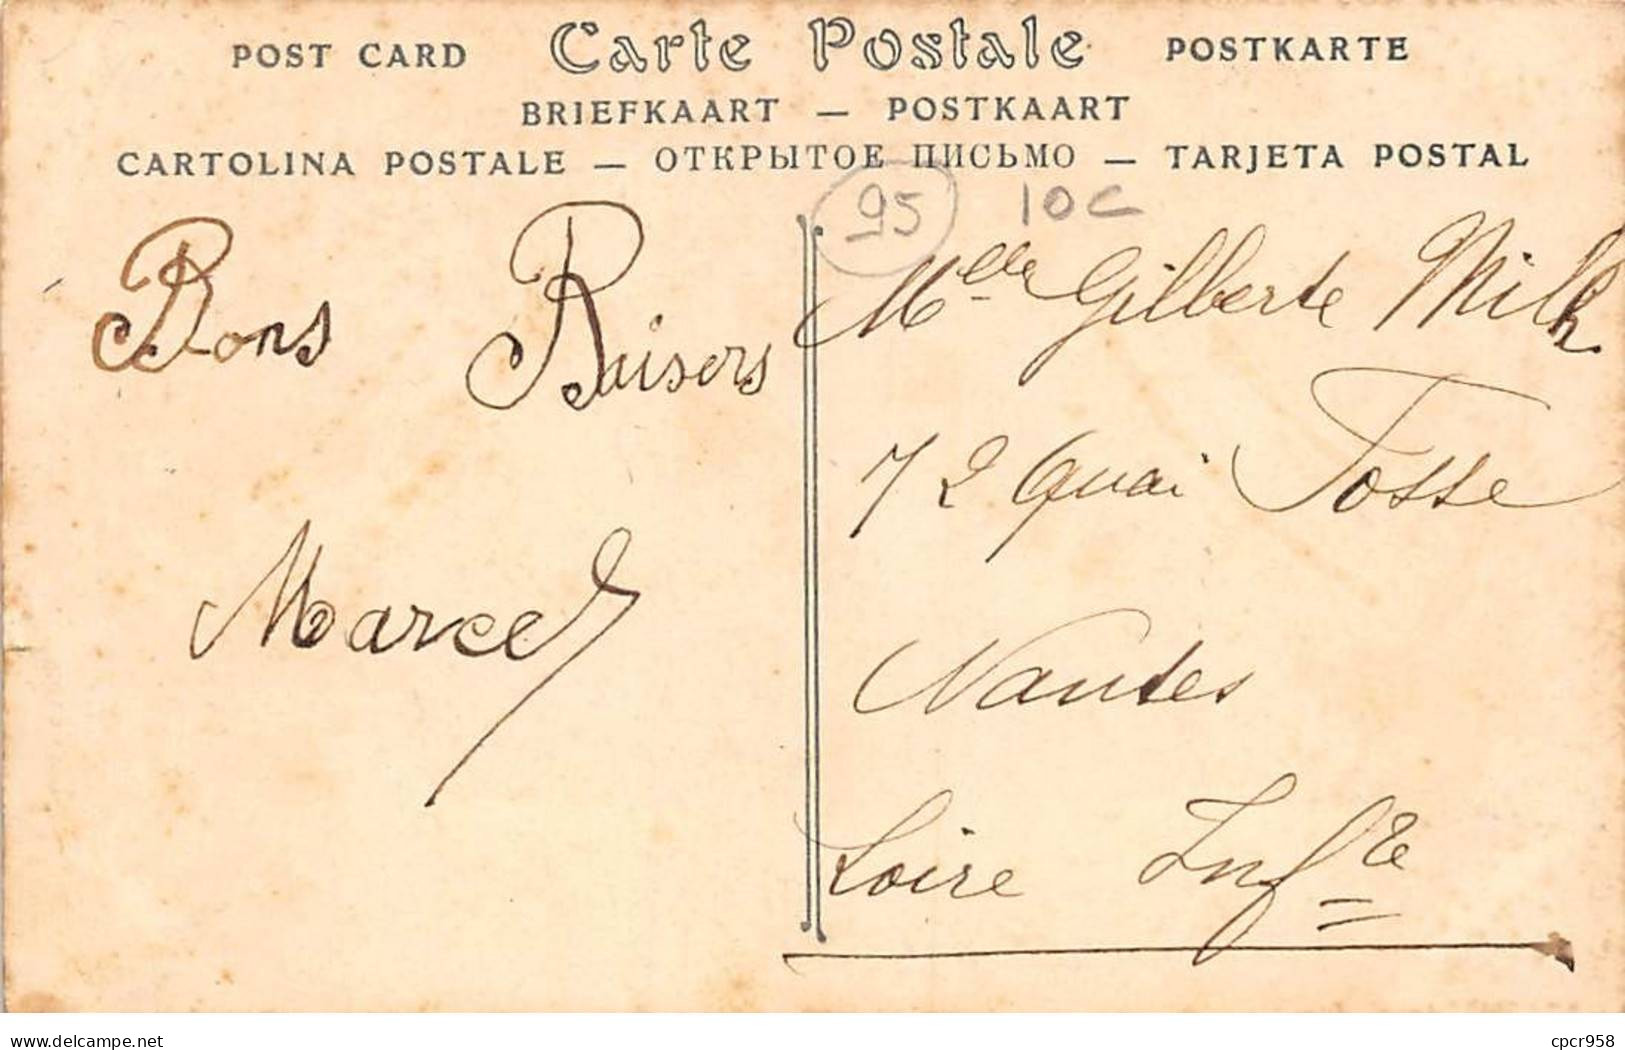 POST CARD Carte Postale POSTKARTE
BRIEFKAART — POSTKAART
CARTOLINA POSTALE — ОТКРЫТОЕ ПИСЬМО — TARJETA POSTAL
95 10C
Bons Baisers
Marcel
Melle Gilberte
72 Quai Fosse
Nantes
Loire Infre
www.delcampe.net
cpcr958